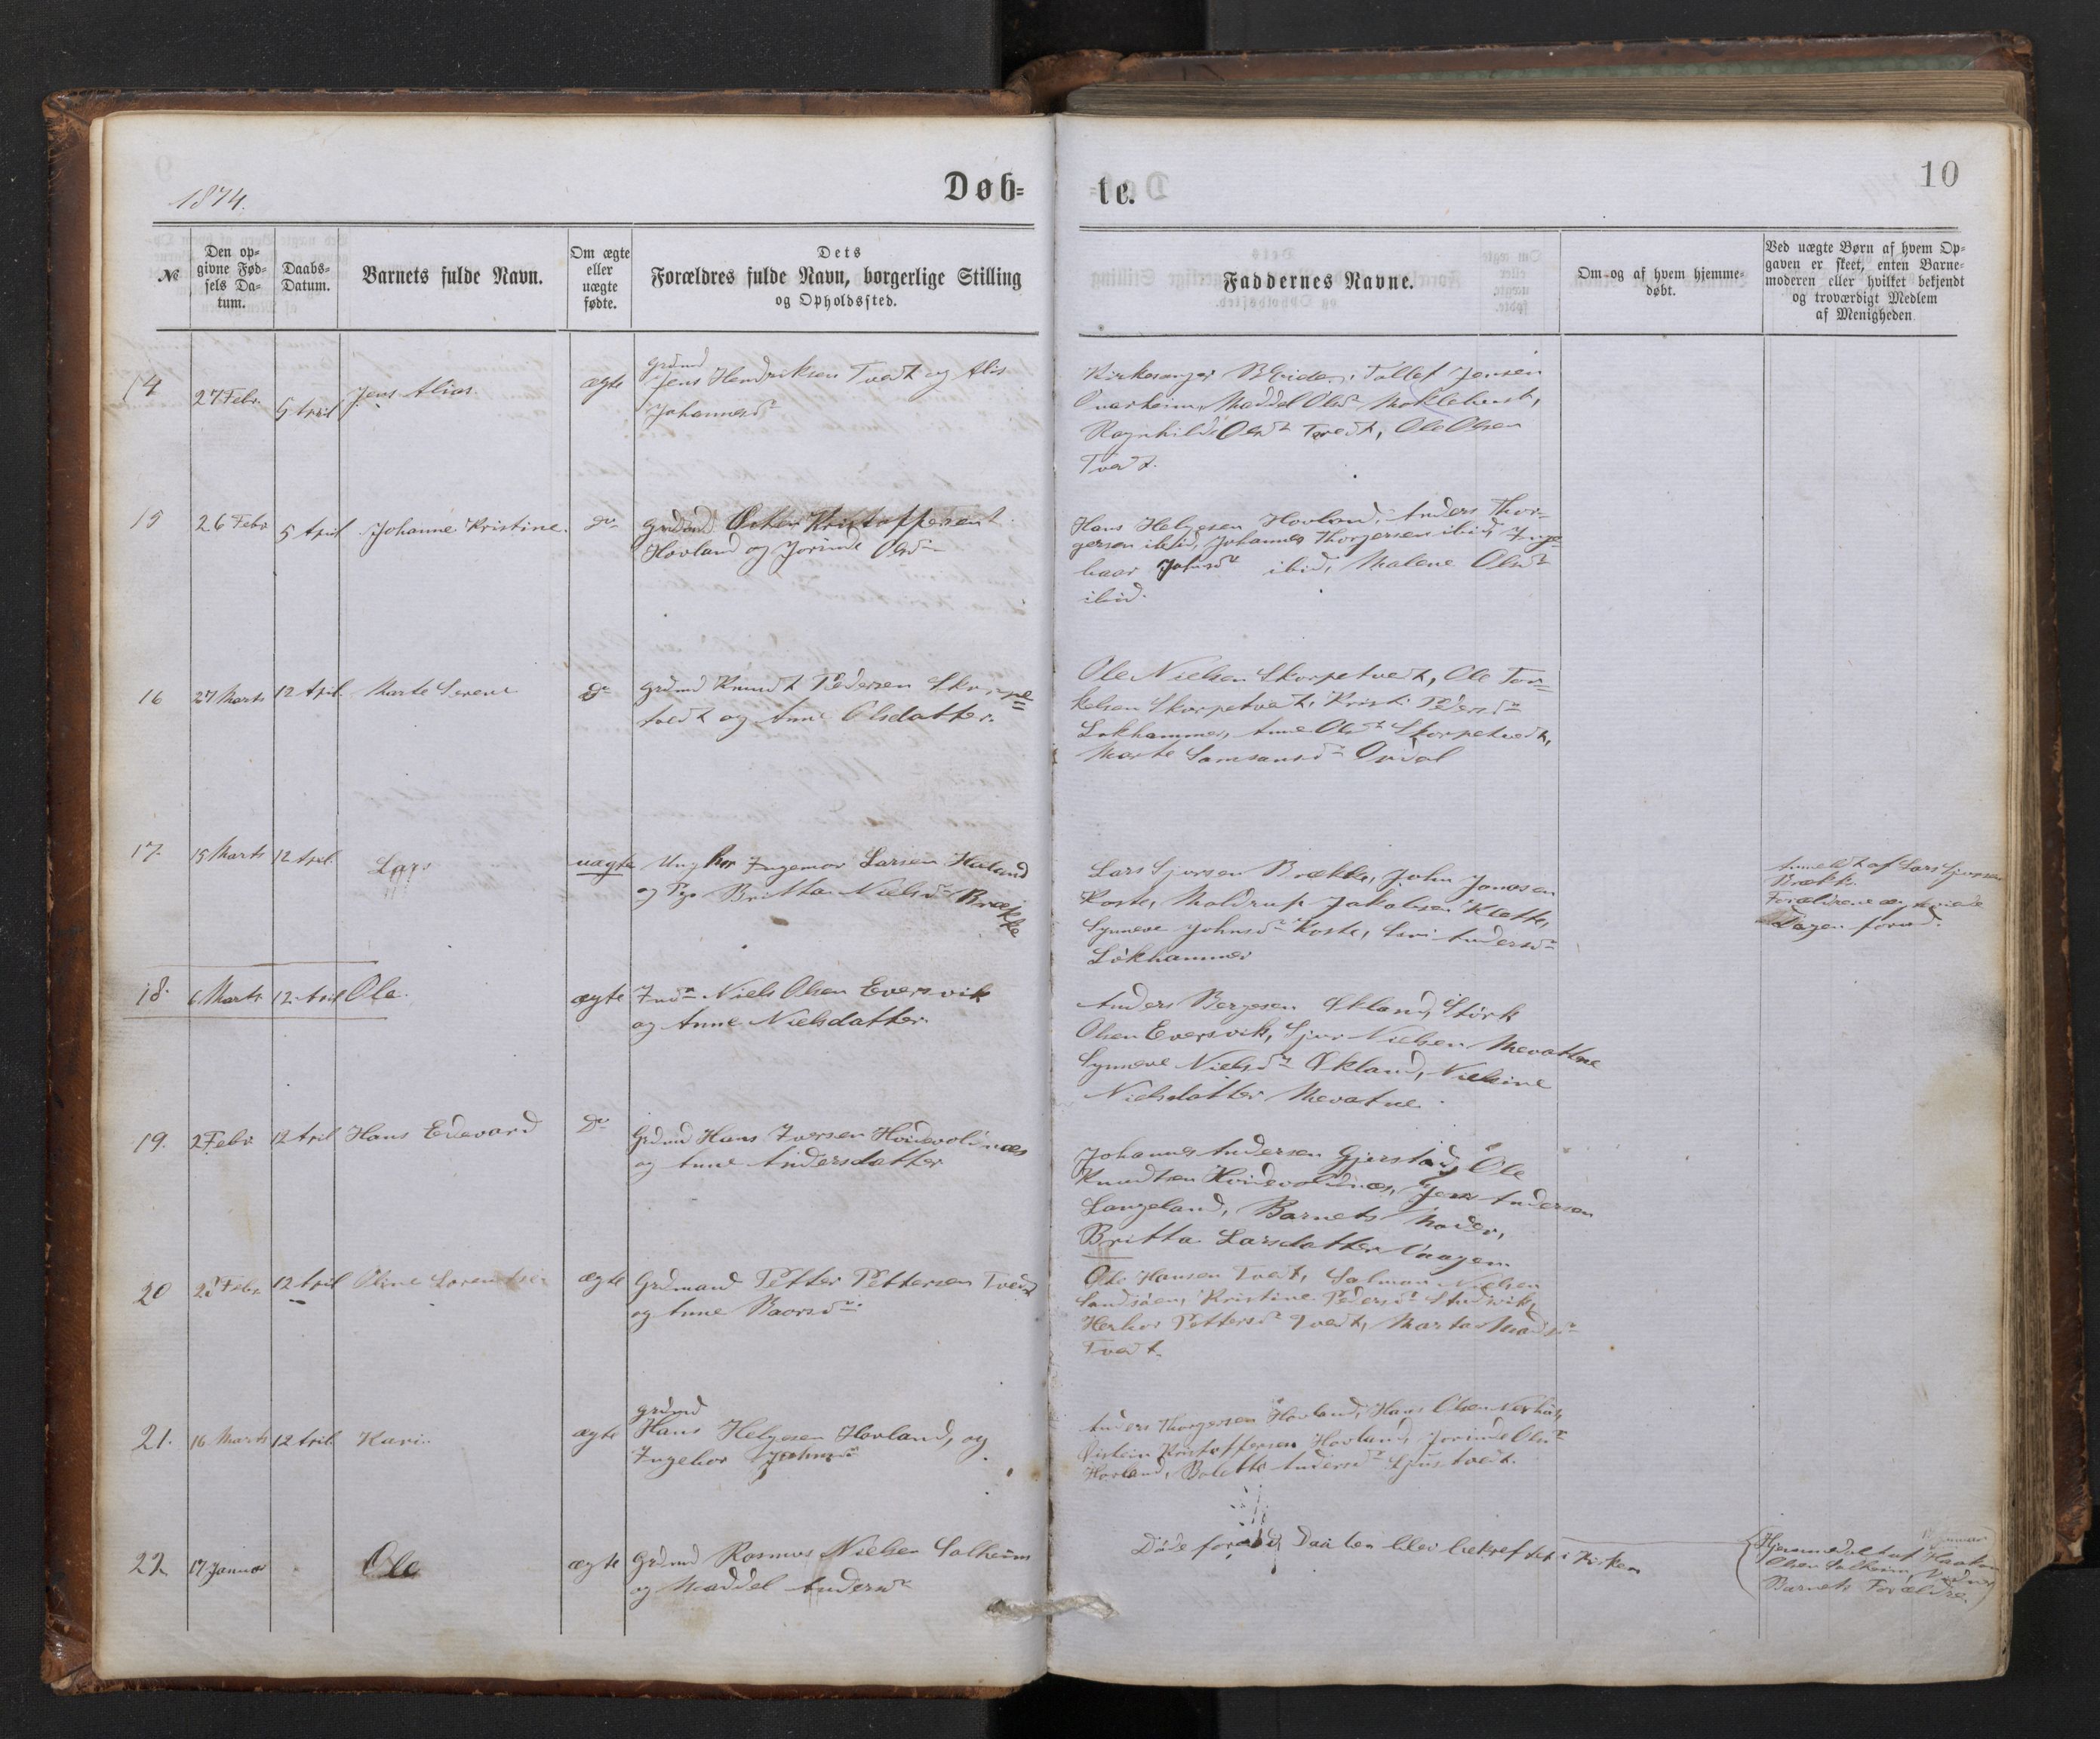 1874.
Døb=
te.
10
№
Den op=
givne Fød=
sels Da=
tum.
Daabs=
Datum.
Barnets fulde Navn.
Om ægte
eller
uægte
fødte.
Dets
Forældres fulde Navn, borgerlige Stilling
og Opholdssted.
Faddernes Navne.
Om og af hvem hjemme=
døbt.
Ved uægte Børn af hvem Op=
gaven er skeet, enten Barne=
moderen eller hvilket bekjendt
og troværdigt Medlem
af Menigheden
14
27 Febr
5 April
Jens Alias.
ægte
Grdmd
Jens Hendriksen Tvedt og Alis
Johannesdr
Kirkesanger Tollef Jensen
Qvarheim, Maddel Olsdr Moklebust,
Ragnhilde Olsdr Tvedt, Ole Olsen
Tvedt.
15
26 Febr
5 April
Johanne Kristine.
do
Grdmd Kristoffersen
Hovland og Jorinde Olsdr
Hans Helgesen Hovland, Anders Thor=
gersen ibid, Johannes Thorgersen ibid, Inge=
baar Johnsdr ibid, Malene Olsdr
ibid.
16
27 Marts
12 April
Marte Serene
do
Grdmd Knudt Pedersen Skorpe=
tvedt og Anne Olsdatter.
Ole Nielsen Skorpetvedt, Ole Tor=
kelsen Skorpetvedt, Kristi Pedersdr
Lokhammer, Anne Olsdr Skorpetvedt,
Marte Samsonsdr Ordal
17.
15 Marts
12 April
Lars
uægte
Ung kar Ingemor Larsen Haland
og Pige Britta Nielsdr Brække
Lars Sjursen Brække, John Jonasen
Koste, Moldrup Jakobsen Klette,
Synneve Johnsdr Koste, Siri Andersdr
Lökhammer
Anmeldt af Lars Sjursen
Brække.
Forældrene
Dagen forud.
18.
6 Marts
12 April
Ole.
ægte
Indr Niels Olsen Eversvik
og Anne Nielsdatter.
Anders Bergesen Økland, Störk
Olsen Eversvik, Sjur Nielsen Mevatne
Synneve Nielsdr Økland, Nielsine
Nielsdatter Mevatne.
19.
2 Febr
12 April
Hans Edevard
do
Grdmd Hans Iversen Hvidevoldnæs
og Anne Andersdatter
Johannes Andersen Gjerstad, Ole
Knudtsen Hvidevoldnæs, Jens Andersen
Langeland, Barnets Moder,
Britta Larsdatter Vaagen
20
12 April
Oline Lorentse
ægte
Grdmand Petter Pettersen Tvedt
og Anne Baarsdr.
Hansen Tvedt, Salmon Nielsen
Kristine Pedersdr
Pettersdr Tvedt, Marta Madsdr
Tvedt.
21.
16 Marts
12 April
Kari.
ægte
Grdmd
Hans Helgesen Hovland, og
Ingebor Johnsdr
Anders Thorgersen Hovland, Hans Olsen Nerhus,
Östein Kristoffersen Hovland, Jorinde Olsdr
Hovland, Bolette Andersdr
22
17 Januar
Ole
ægte
Grdmd Rasmus Nielsen Solheim
og Maddel Andersdr
Döde forend Daaben blev bekreftet i Kirken
Hjemmedöbt af Haakon
Olsen Solheim,
Barnets Forældre.